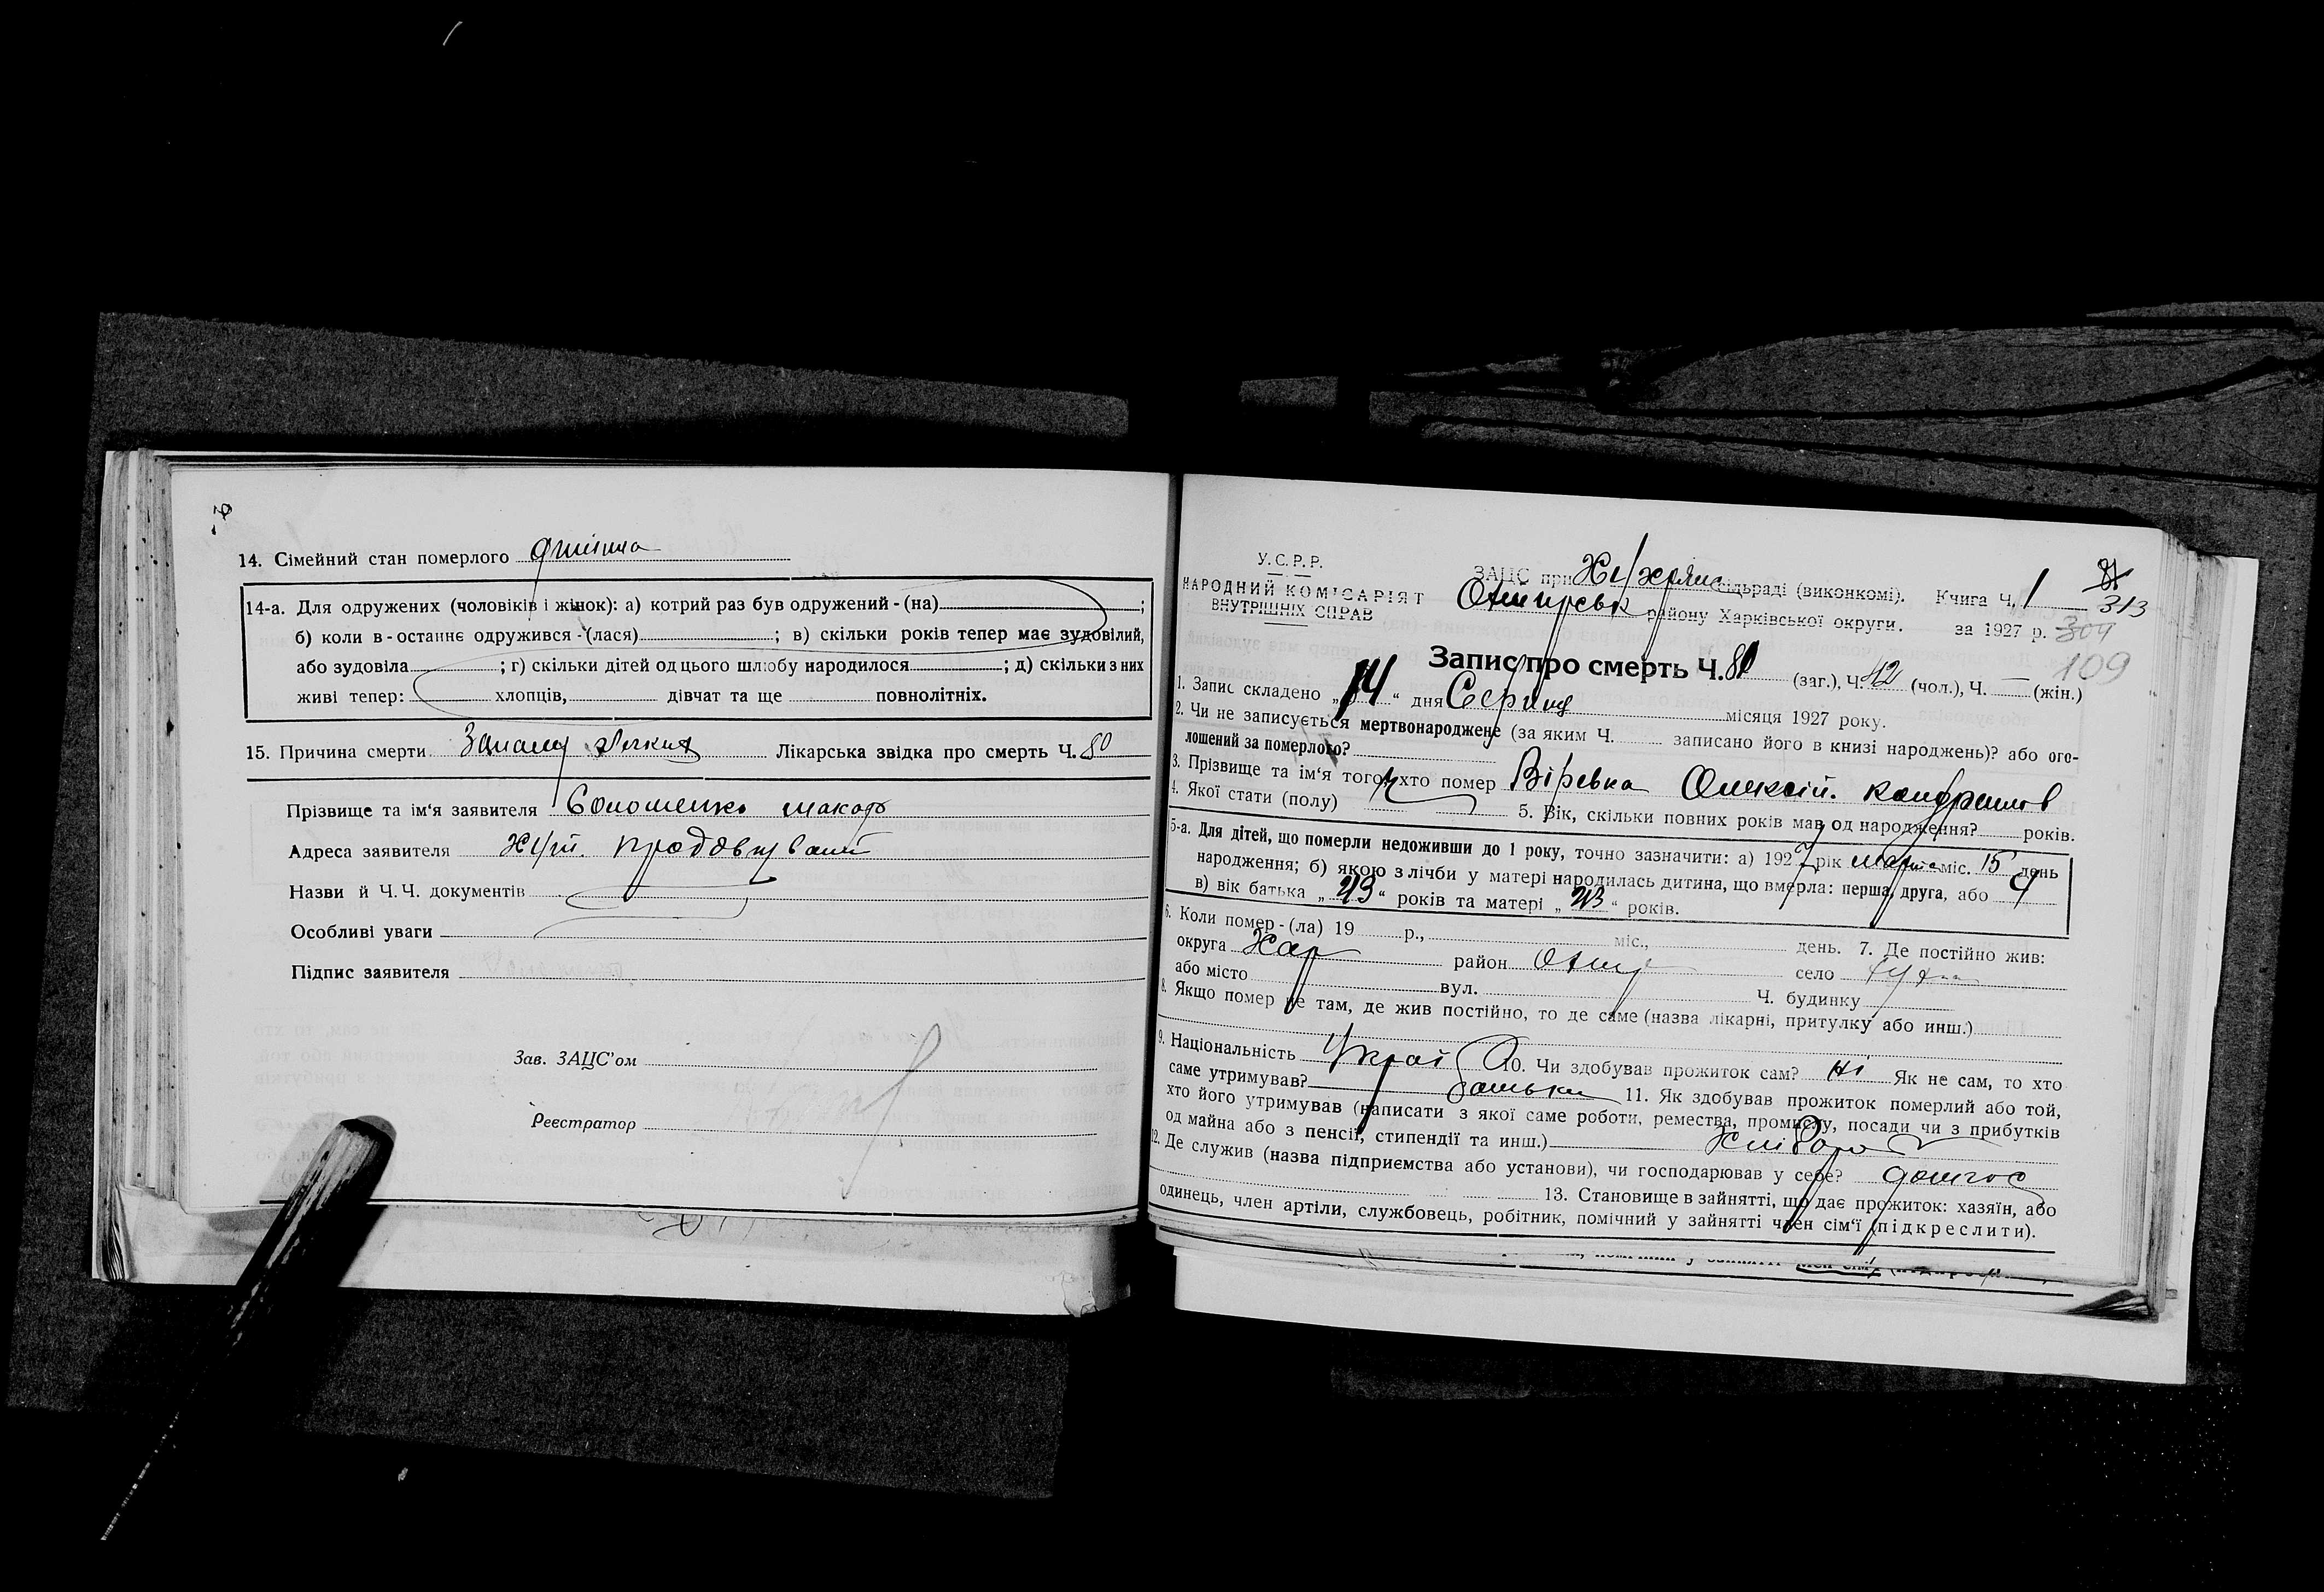 14. Сімейний стан померлого дитина
14-а. Для одружених (чоловіків і жінок): а) котрий раз був одружений-(на);
б) коли в-останнє одружився-(лася) ; в) скільки років тепер має зудовілий,
або зудовіла ; г) скільки дітей од цього шлюбу народилося ; д) скільки з них
живі тепер: хлопців, дівчат та ще повнолітніх.
15. Причина смерти Лікарська звідка про смерть Ч. 80
Прізвище та ім'я заявителя Макар
Адреса заявителя
Назви й Ч.Ч. документів
Особливі уваги
Підпис заявителя
Зав. ЗАЦС'ом
Реєстратор
У.С.Р.Р.
НАРОДНИЙ КОМІСАРІЯТ
ВНУТРІШНІХ СПРАВ
ЗАЦС при сільраді (виконкомі). Книга Ч. 1
313
району Харківської округи. за 1927 р. 304
109
Запис про смерть Ч. (заг.), Ч. 42 (чол.), Ч. — (жін.)
1. Запис складено „14“ дня Серпня місяця 1927 року.
2. Чи не записується мертвонароджене (за яким Ч. записано його в книзі народжень)? або ого-
лошений за померлого?
3. Прізвище та ім'я того, хто помер Вірьовка Олексій
4. Якої стати (полу) Ч 5. Вік, скільки повних років мав од народження? років.
5-а. Для дітей, що померли недоживши до 1 року, точно зазначити: а) 1927 рік марта міс. 15 день
народження; б) якою з лічби у матері народилась дитина, що вмерла: перша, друга, або 4
в) вік батька „43“ років та матері „43“ років.
6. Коли помер-(ла) 19 р., міс., день. 7. Де постійно жив:
округа Хар район село
або місто вул. Ч. будинку
8. Якщо помер не там, де жив постійно, то де саме (назва лікарні, притулку або инш.)
9. Національність Украї 10. Чи здобував прожиток сам? ні Як не сам, то хто
саме утримував? батьки 11. Як здобував прожиток померлий або той,
хто його утримував (написати з якої саме роботи, ремества, промислу, посади чи з прибутків
од майна або з пенсії, стипендії та инш.) хлібороб
12. Де служив (назва підприємства або установи), чи господарював у себе?
13. Становище в зайнятті, що дає прожиток: хазяїн, або
одинець, член артіли, службовець, робітник, помічний у зайнятті член сім'ї (підкреслити).